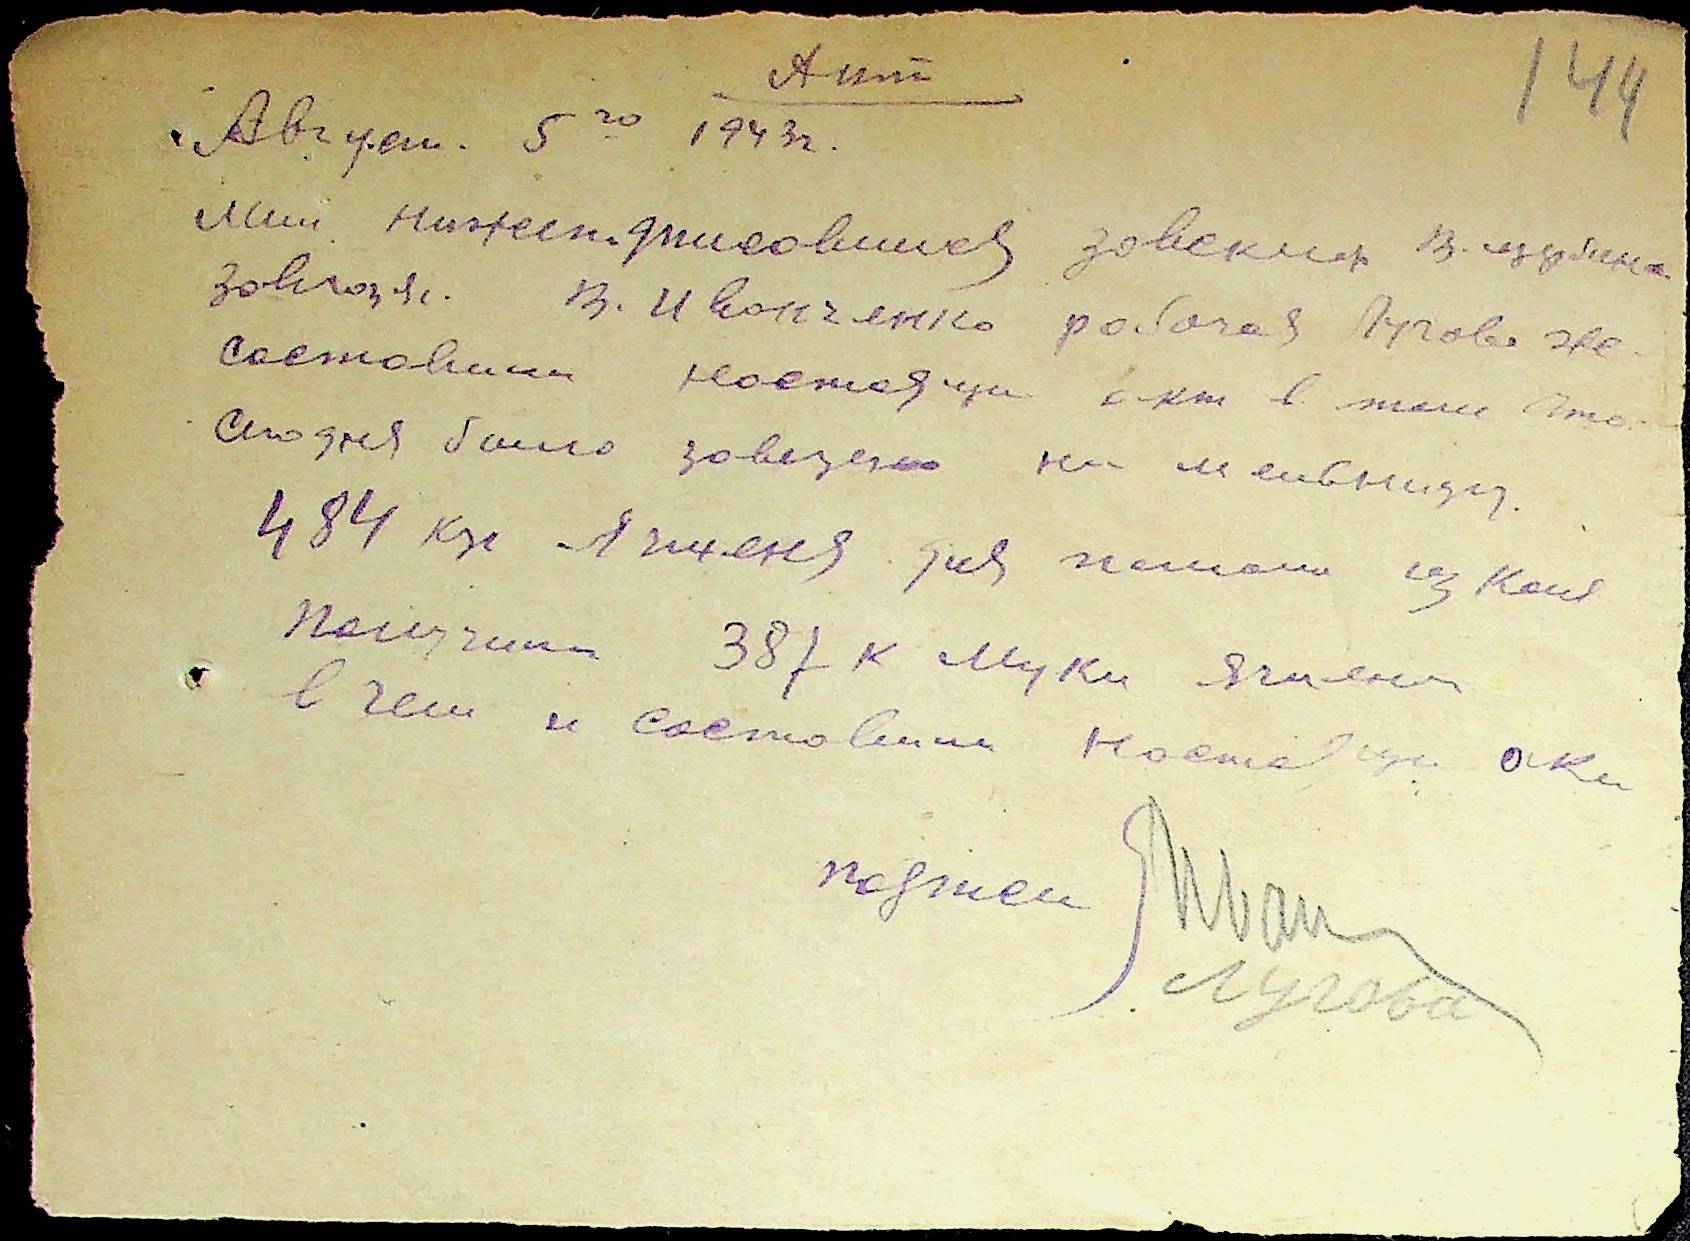 Акт
144
Август. 5го 1943г.
Мы нижеподписавшися завскла В.
завхозя. В. Иванченко рабочая Лугова же
составили настоящи акт в том что
сиодня было завезено на мельницу.
484 кг Ячменя для помола из кои
Получили 387 к Муки ячмена
в чем и составили настоящи акт
подписи Иван
Лугова